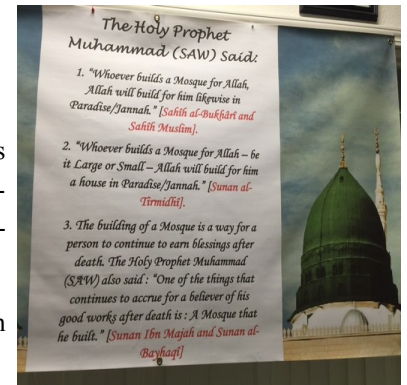 The Holy Prophet
Muhammad (SAW) Said:
1. "Whoever builds a Mosque for Allah,
Allah will build for him likewise in
Paradise/Jannah." [Sahīh al-Bukhārī and
Sahīh Muslim].
2. "Whoever builds a Mosque for Allah – be
it Large or Small – Allah will build for him
a house in Paradise/Jannah." [Sunan al-
Tirmidhī].
3. The building of a Mosque is a way for a
person to continue to earn blessings after
death. The Holy Prophet Muhammad
(SAW) also said : "One of the things that
continues to accrue for a believer of his
good works after death is : A Mosque that
he built." [Sunan Ibn Majah and Sunan al-
Bayhaqī]